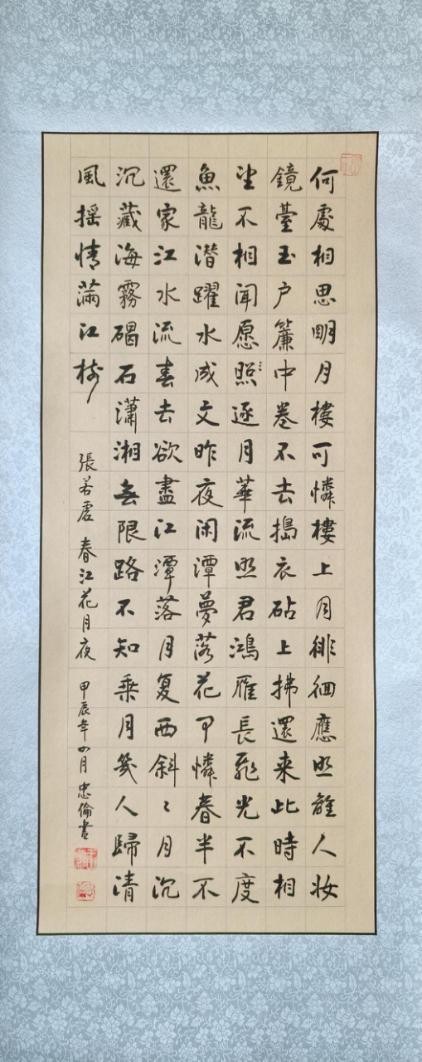 何處相思明月樓可憐樓上月徘徊應照離人妝
鏡臺玉户簾中卷不去搗衣砧上拂還来此時相
望不相聞愿照逐月華流照君鴻雁長飛光不度
魚龍潛躍水成文昨夜闲潭夢落花可憐春半不
還家江水流春去欲盡江潭落月复西斜〻月沉
沉藏海霧碣石瀟湘无限路不知乘月幾人歸清
風摇情滿江樹
張若虛 春江花月夜 甲辰年四月 忠倫書